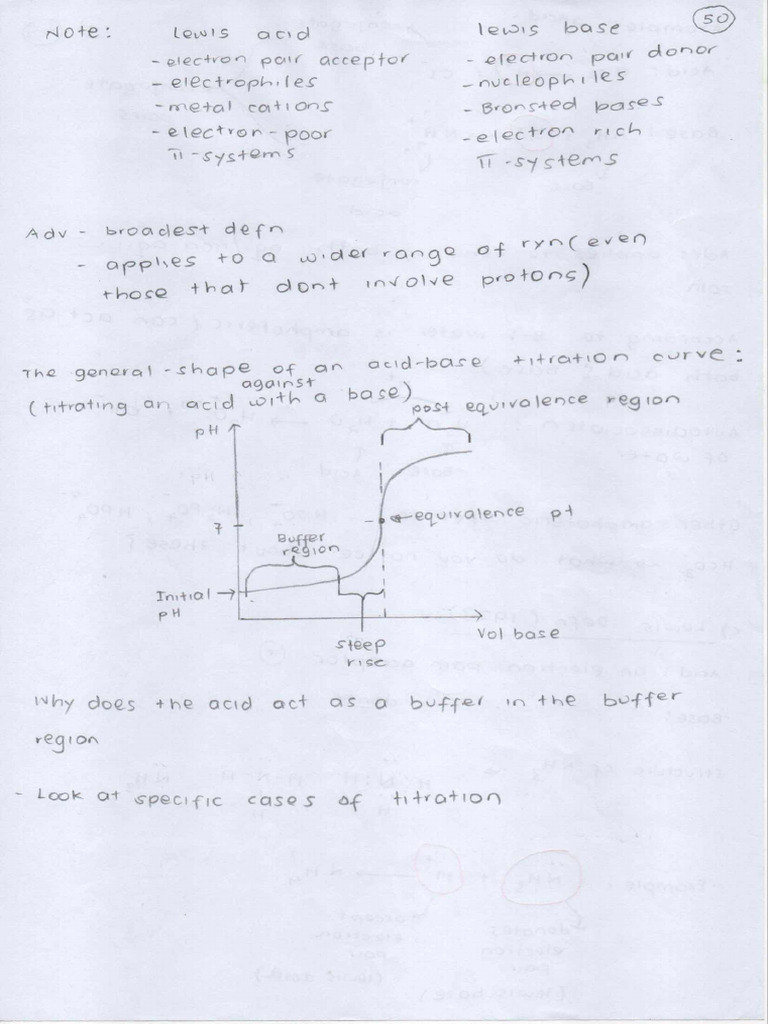 50
Note: Lewis acid Lewis base
- electron pair acceptor - electron pair donor
- electrophiles - nucleophiles
- metal cations - Bronsted bases
- electron-poor - electron rich
π-systems π-systems
Adv - broadest defn
- applies to a wider range of rxn (even
those that dont involve protons)
The general-shape of an acid-base titration curve:
against
(titrating an acid with a base)
post equivalence region
pH
equivalence pt
7
Buffer
region
Initial
pH
Vol base
steep
rise
Why does the acid act as a buffer in the buffer
region
- Look at specific cases of titration